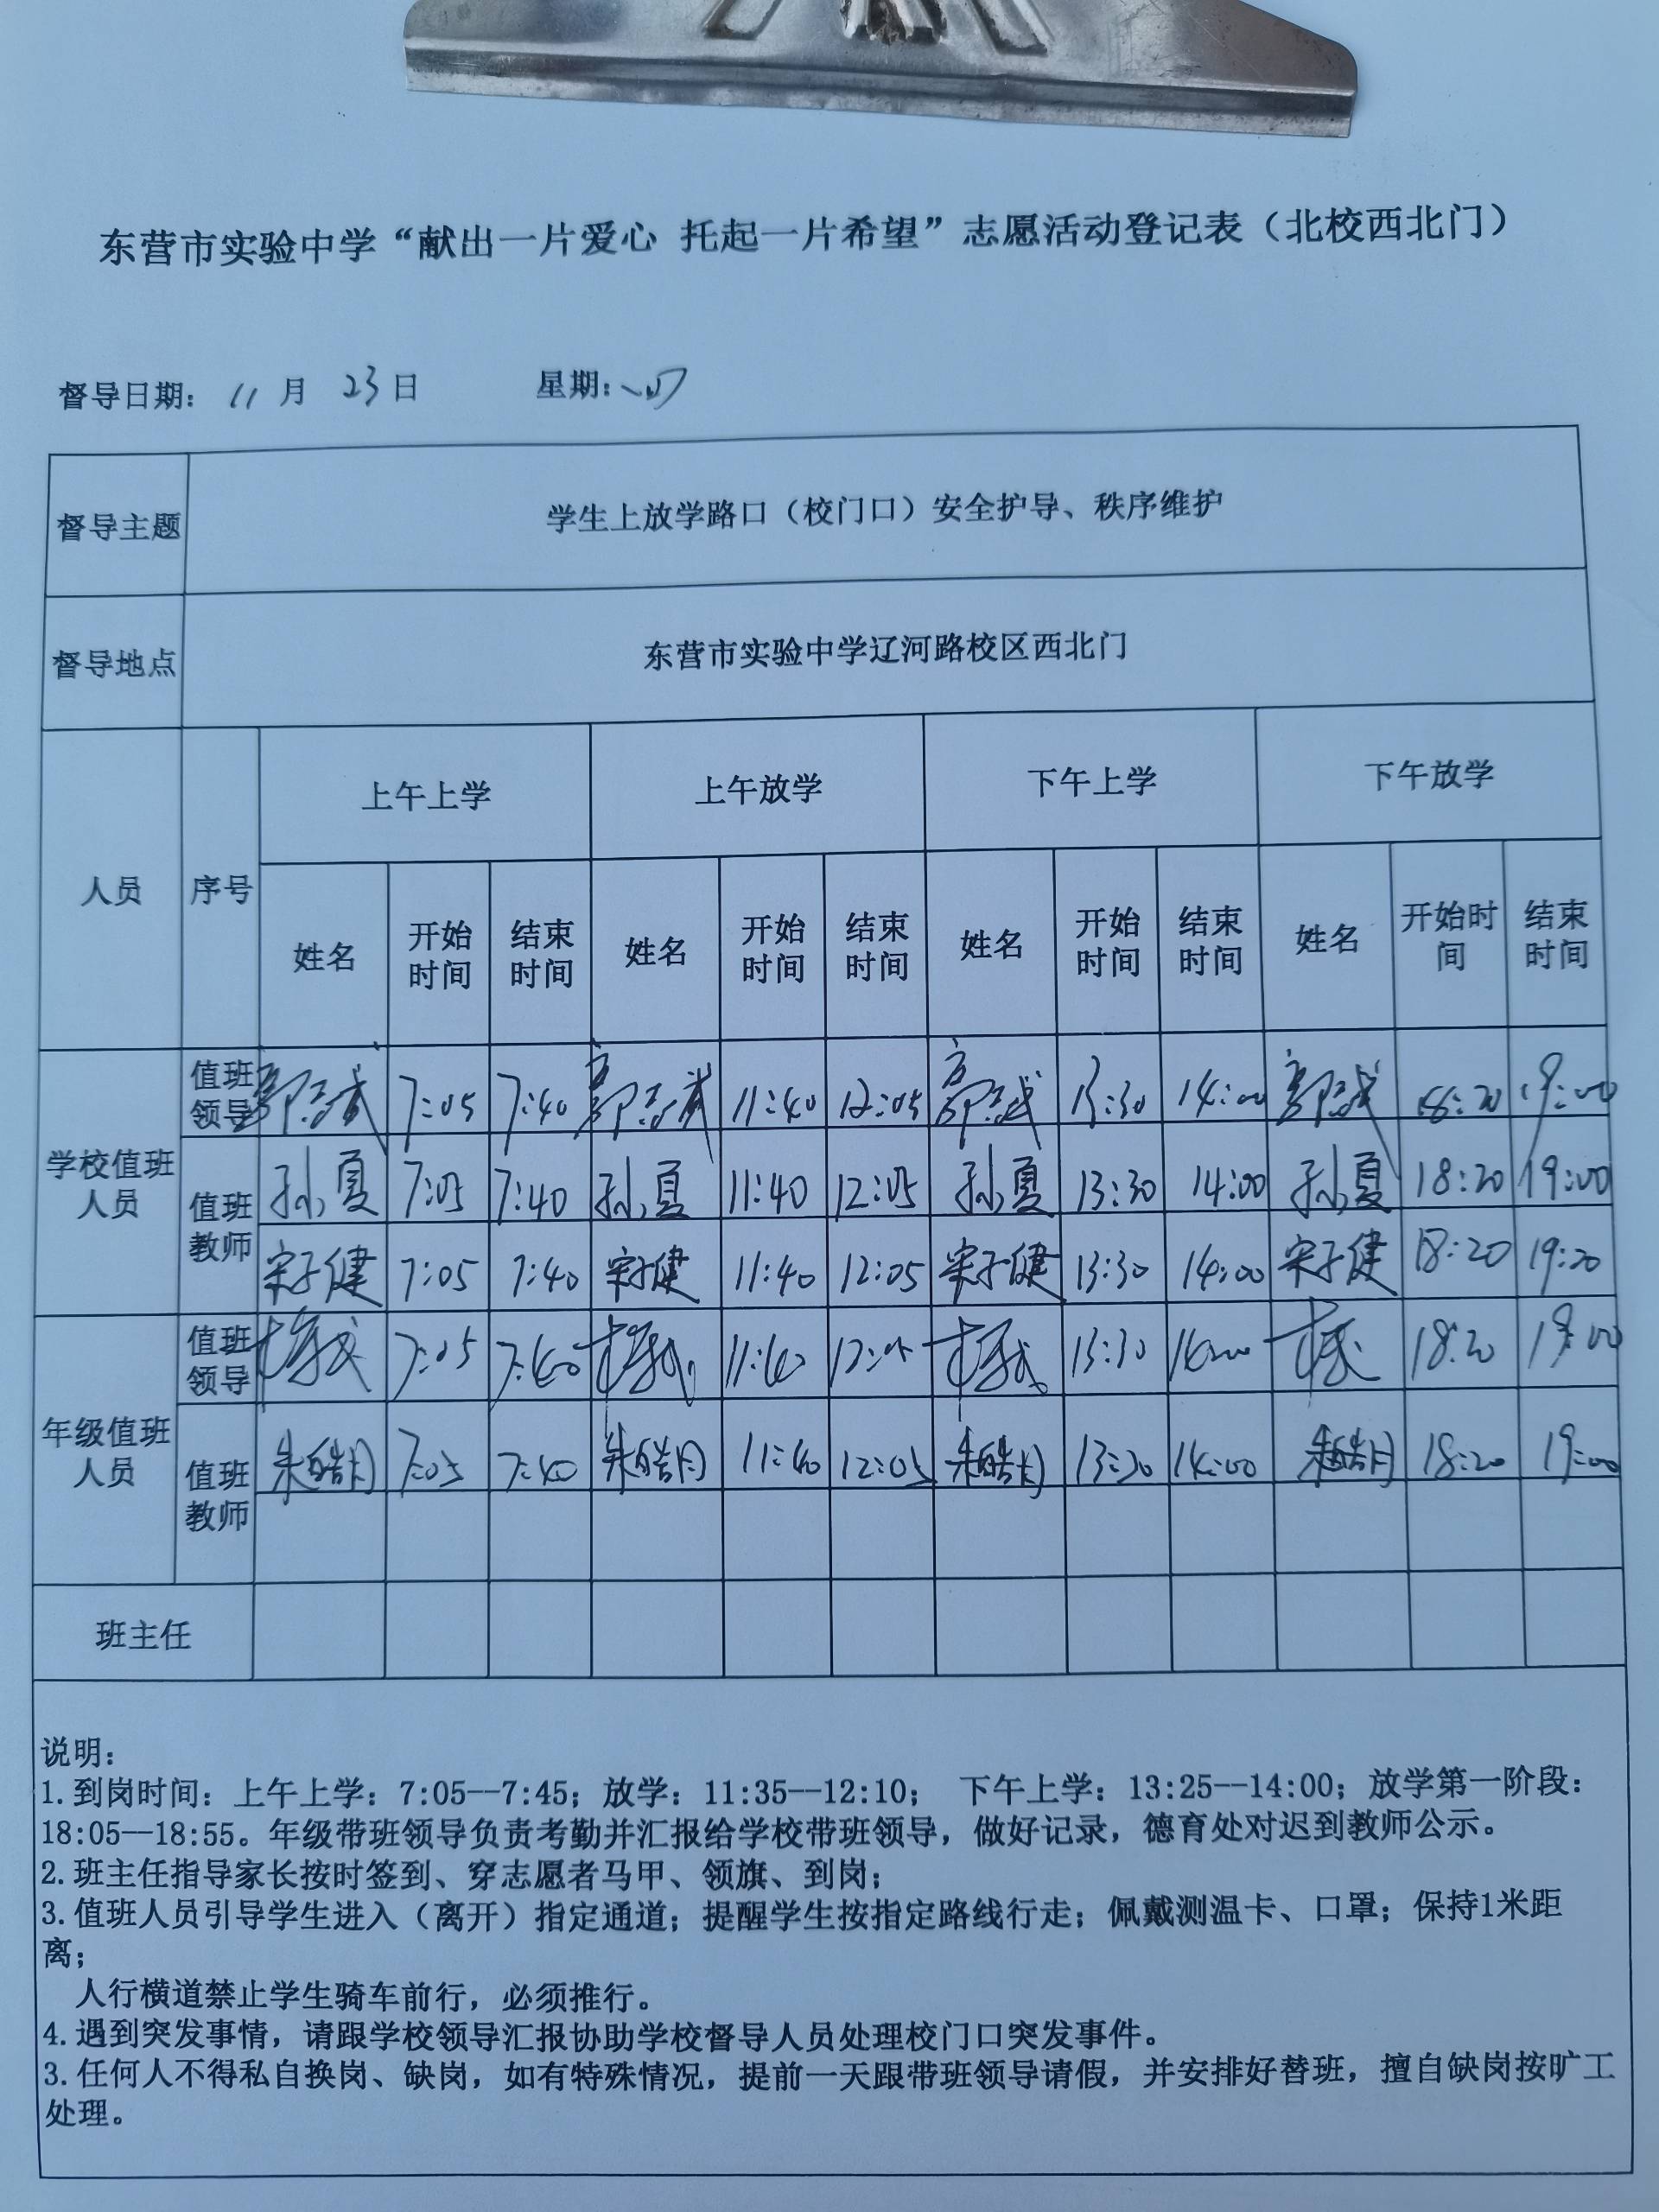 东营市实验中学“献出一片爱心 托起一片希望”志愿活动登记表（北校西北门）
督导日期： 11 月 23 日 星期：四
督导主题 学生上放学路口（校门口）安全护导、秩序维护
督导地点 东营市实验中学辽河路校区西北门
人员 序号 上午上学 上午放学 下午上学 下午放学
姓名 开始时间 结束时间 姓名 开始时间 结束时间 姓名 开始时间 结束时间 姓名 开始时间 结束时间
学校值班人员 值班领导 7:05 7:40 11:40 12:05 13:30 14:00 18:20 19:00
值班教师 孙夏 7:05 7:40 孙夏 11:40 12:05 孙夏 13:30 14:00 孙夏 18:20 19:00
宋子健 7:05 7:40 宋子健 11:40 12:05 宋子健 13:30 14:00 宋子健 18:20 19:20
年级值班人员 值班领导 7:05 7:40 11:40 12:05 13:30 14:00 18:20 19:00
值班教师 朱皓月 7:05 7:40 朱皓月 11:40 12:05 朱皓月 13:30 14:00 朱皓月 18:20 19:00
班主任
说明：
1.到岗时间：上午上学：7:05--7:45；放学：11:35--12:10； 下午上学：13:25--14:00；放学第一阶段：
18:05--18:55。年级带班领导负责考勤并汇报给学校带班领导，做好记录，德育处对迟到教师公示。
2.班主任指导家长按时签到、穿志愿者马甲、领旗、到岗；
3.值班人员引导学生进入（离开）指定通道；提醒学生按指定路线行走；佩戴测温卡、口罩；保持1米距
离；
人行横道禁止学生骑车前行，必须推行。
4.遇到突发事情，请跟学校领导汇报协助学校督导人员处理校门口突发事件。
3.任何人不得私自换岗、缺岗，如有特殊情况，提前一天跟带班领导请假，并安排好替班，擅自缺岗按旷工
处理。